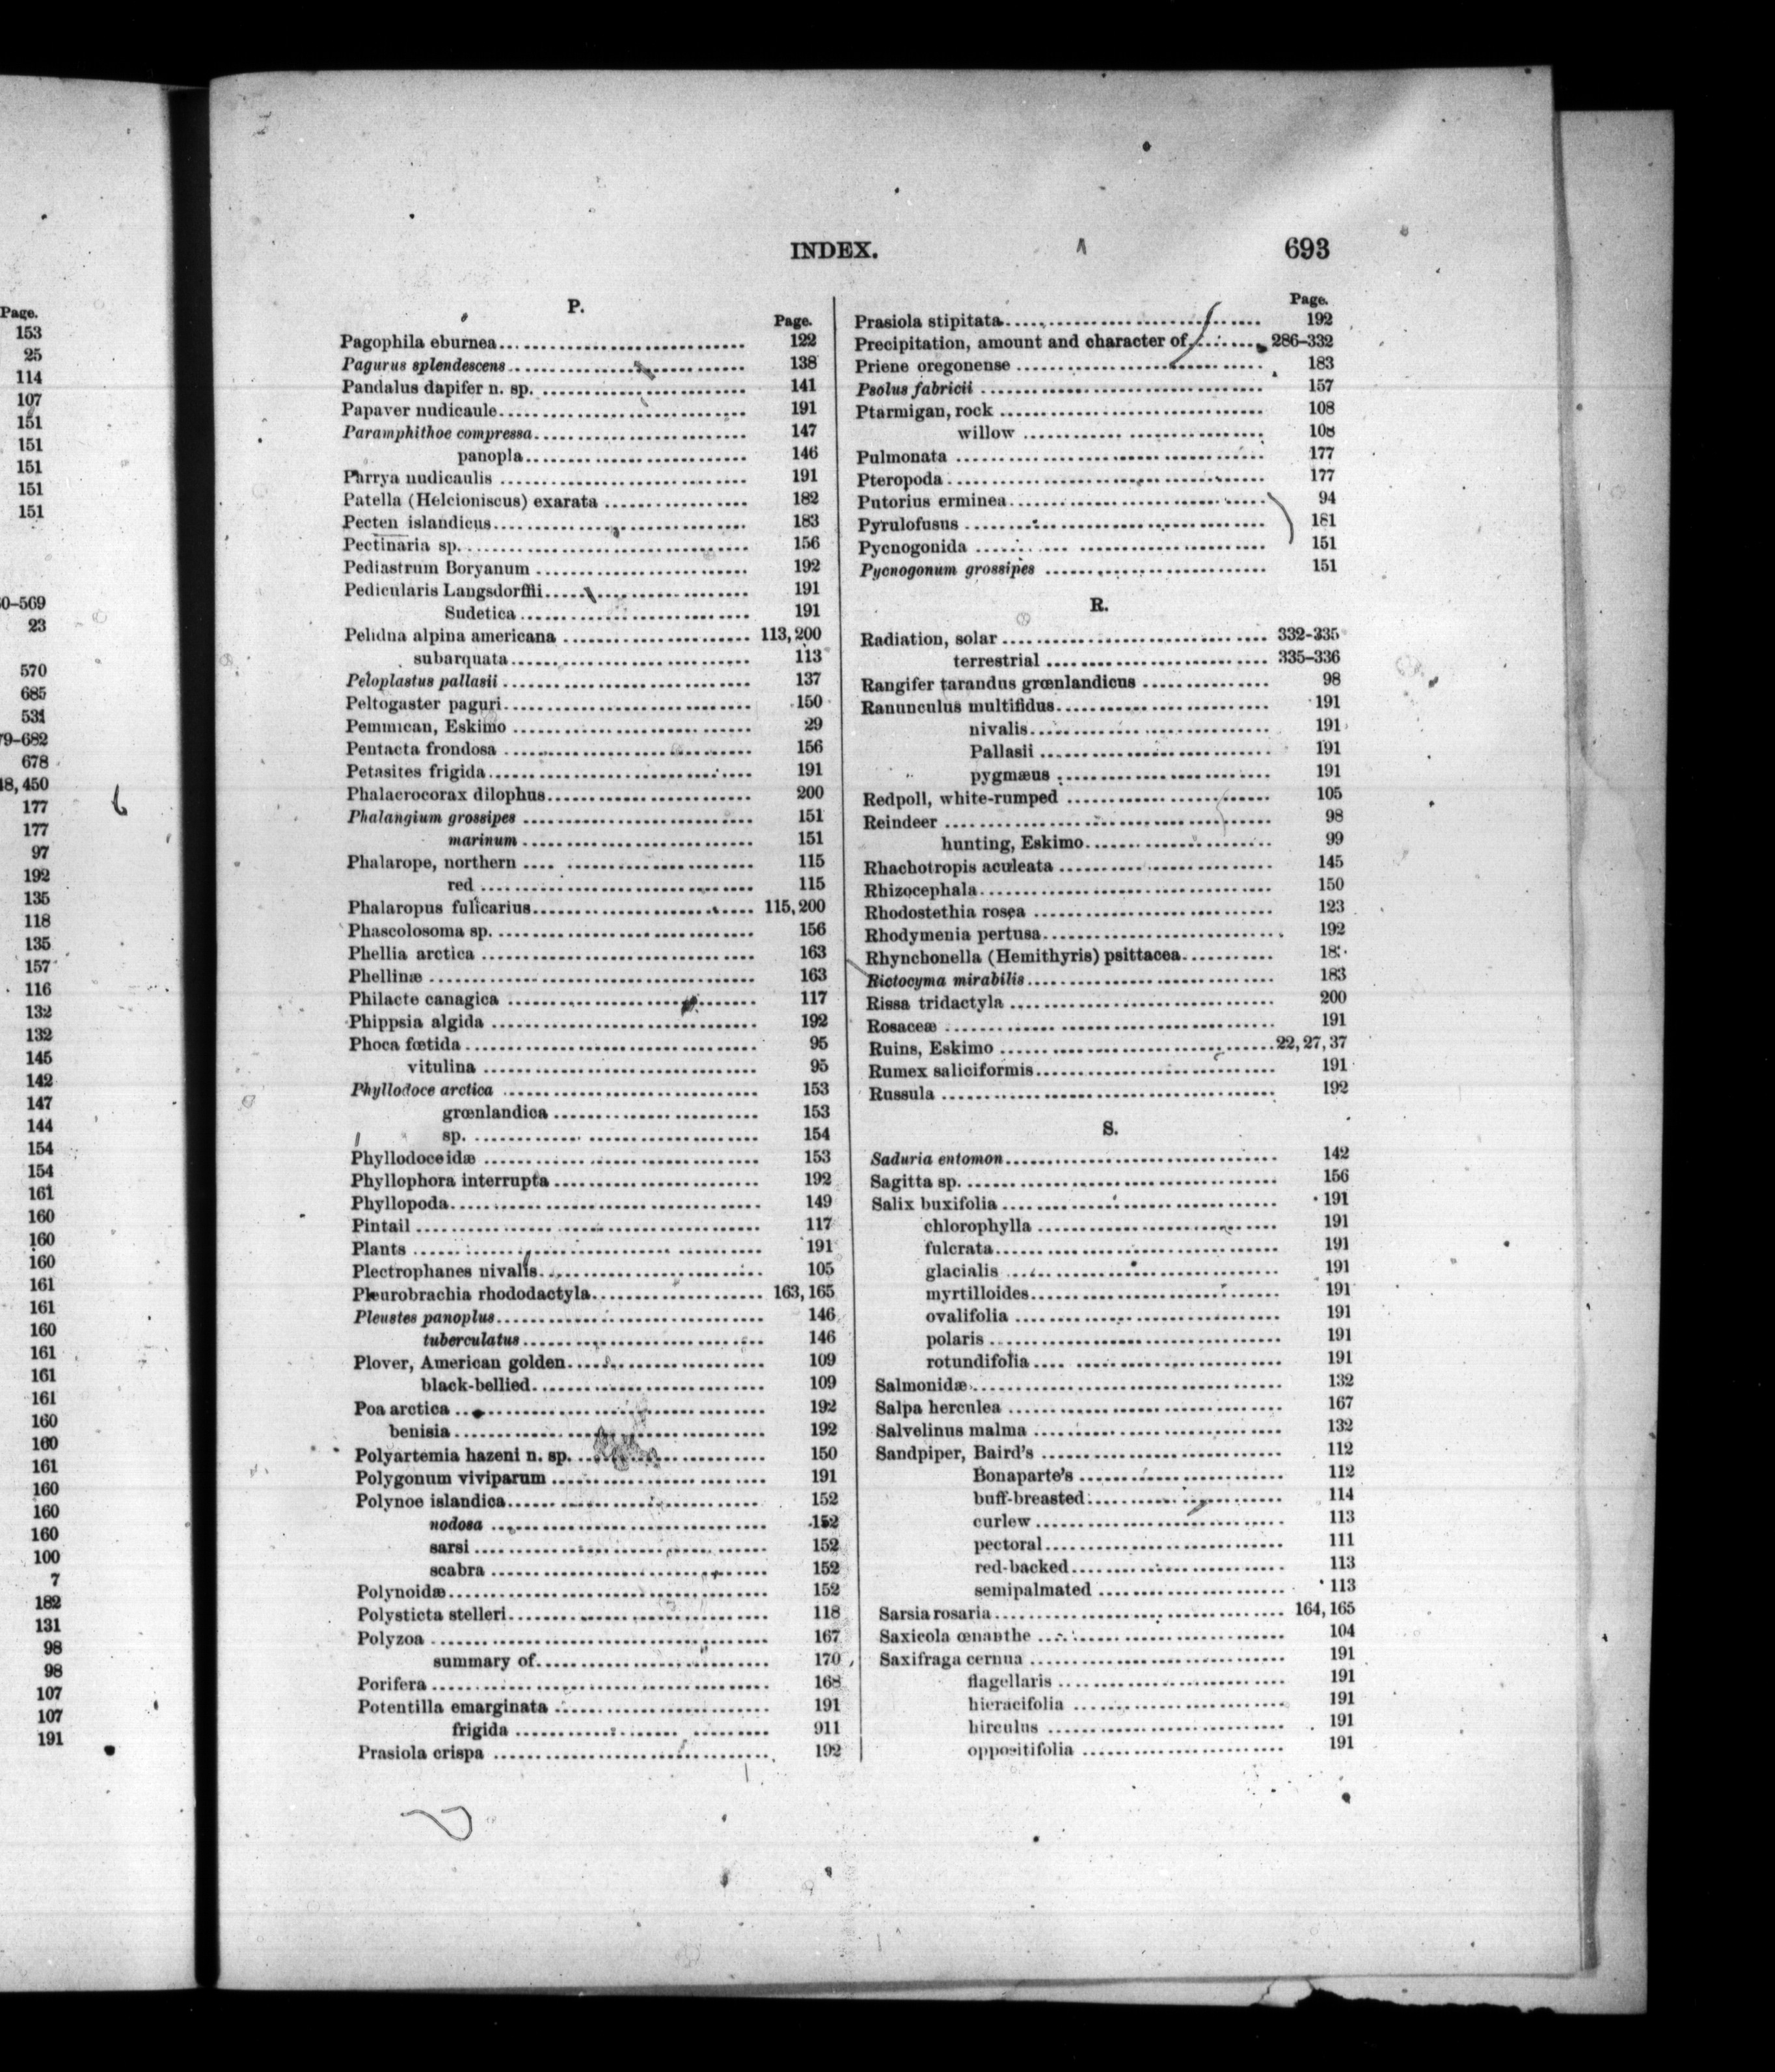 Page.
153
25
114
107
151
151
151
151
151
0–569
23
570
685
531
79–682
678
48, 450
177
177
97
192
135
118
135
157
116
132
132
145
142
147
144
154
154
161
160
160
160
161
161
160
161
161
161
160
160
161
160
160
160
100
7
182
131
98
98
107
107
191
INDEX. 693
P.
Page.
Pagophila eburnea 122
Pagurus splendescens 138
Pandalus dapifer n. sp. 141
Papaver nudicaule 191
Paramphithoe compressa 147
panopla 146
Parrya nudicaulis 191
Patella (Helcioniscus) exarata 182
Pecten islandicus 183
Pectinaria sp. 156
Pediastrum Boryanum 192
Pedicularis Langsdorffii 191
Sudetica 191
Pelidna alpina americana 113, 200
subarquata 113
Peloplastus pallasii 137
Peltogaster paguri 150
Pemmican, Eskimo 29
Pentacta frondosa 156
Petasites frigida 191
Phalacrocorax dilophus 200
Phalangium grossipes 151
marinum 151
Phalarope, northern 115
red 115
Phalaropus fulicarius 115, 200
Phascolosoma sp. 156
Phellia arctica 163
Phellinæ 163
Philacte canagica 117
Phippsia algida 192
Phoca fœtida 95
vitulina 95
Phyllodoce arctica 153
grœnlandica 153
sp. 154
Phyllodoceidæ 153
Phyllophora interrupta 192
Phyllopoda 149
Pintail 117
Plants 191
Plectrophanes nivalis 105
Pleurobrachia rhododactyla 163, 165
Pleustes panoplus 146
tuberculatus 146
Plover, American golden 109
black-bellied 109
Poa arctica 192
benisia 192
Polyartemia hazeni n. sp. 150
Polygonum viviparum 191
Polynoe islandica 152
nodosa 152
sarsi 152
scabra 152
Polynoidæ 152
Polysticta stelleri 118
Polyzoa 167
summary of 170
Porifera 168
Potentilla emarginata 191
frigida 911
Prasiola crispa 192
Page.
Prasiola stipitata 192
Precipitation, amount and character of 286–332
Priene oregonense 183
Psolus fabricii 157
Ptarmigan, rock 108
willow 108
Pulmonata 177
Pteropoda 177
Putorius erminea 94
Pyrulofusus 181
Pycnogonida 151
Pycnogonum grossipes 151
R.
Radiation, solar 332–335
terrestrial 335–336
Rangifer tarandus grœnlandicus 98
Ranunculus multifidus 191
nivalis 191
Pallasii 191
pygmæus 191
Redpoll, white-rumped 105
Reindeer 98
hunting, Eskimo 99
Rhachotropis aculeata 145
Rhizocephala 150
Rhodostethia rosea 123
Rhodymenia pertusa 192
Rhynchonella (Hemithyris) psittacea
Rictocyma mirabilis 183
Rissa tridactyla 200
Rosaceæ 191
Ruins, Eskimo 22, 27, 37
Rumex saliciformis 191
Russula 192
S.
Saduria entomon 142
Sagitta sp. 156
Salix buxifolia 191
chlorophylla 191
fulcrata 191
glacialis 191
myrtilloides 191
ovalifolia 191
polaris 191
rotundifolia 191
Salmonidæ 132
Salpa herculea 167
Salvelinus malma 132
Sandpiper, Baird's 112
Bonaparte's 112
buff-breasted 114
curlew 113
pectoral 111
red-backed 113
semipalmated 113
Sarsia rosaria 164, 165
Saxicola œnanthe 104
Saxifraga cernua 191
flagellaris 191
hieracifolia 191
hirculus 191
oppositifolia 191